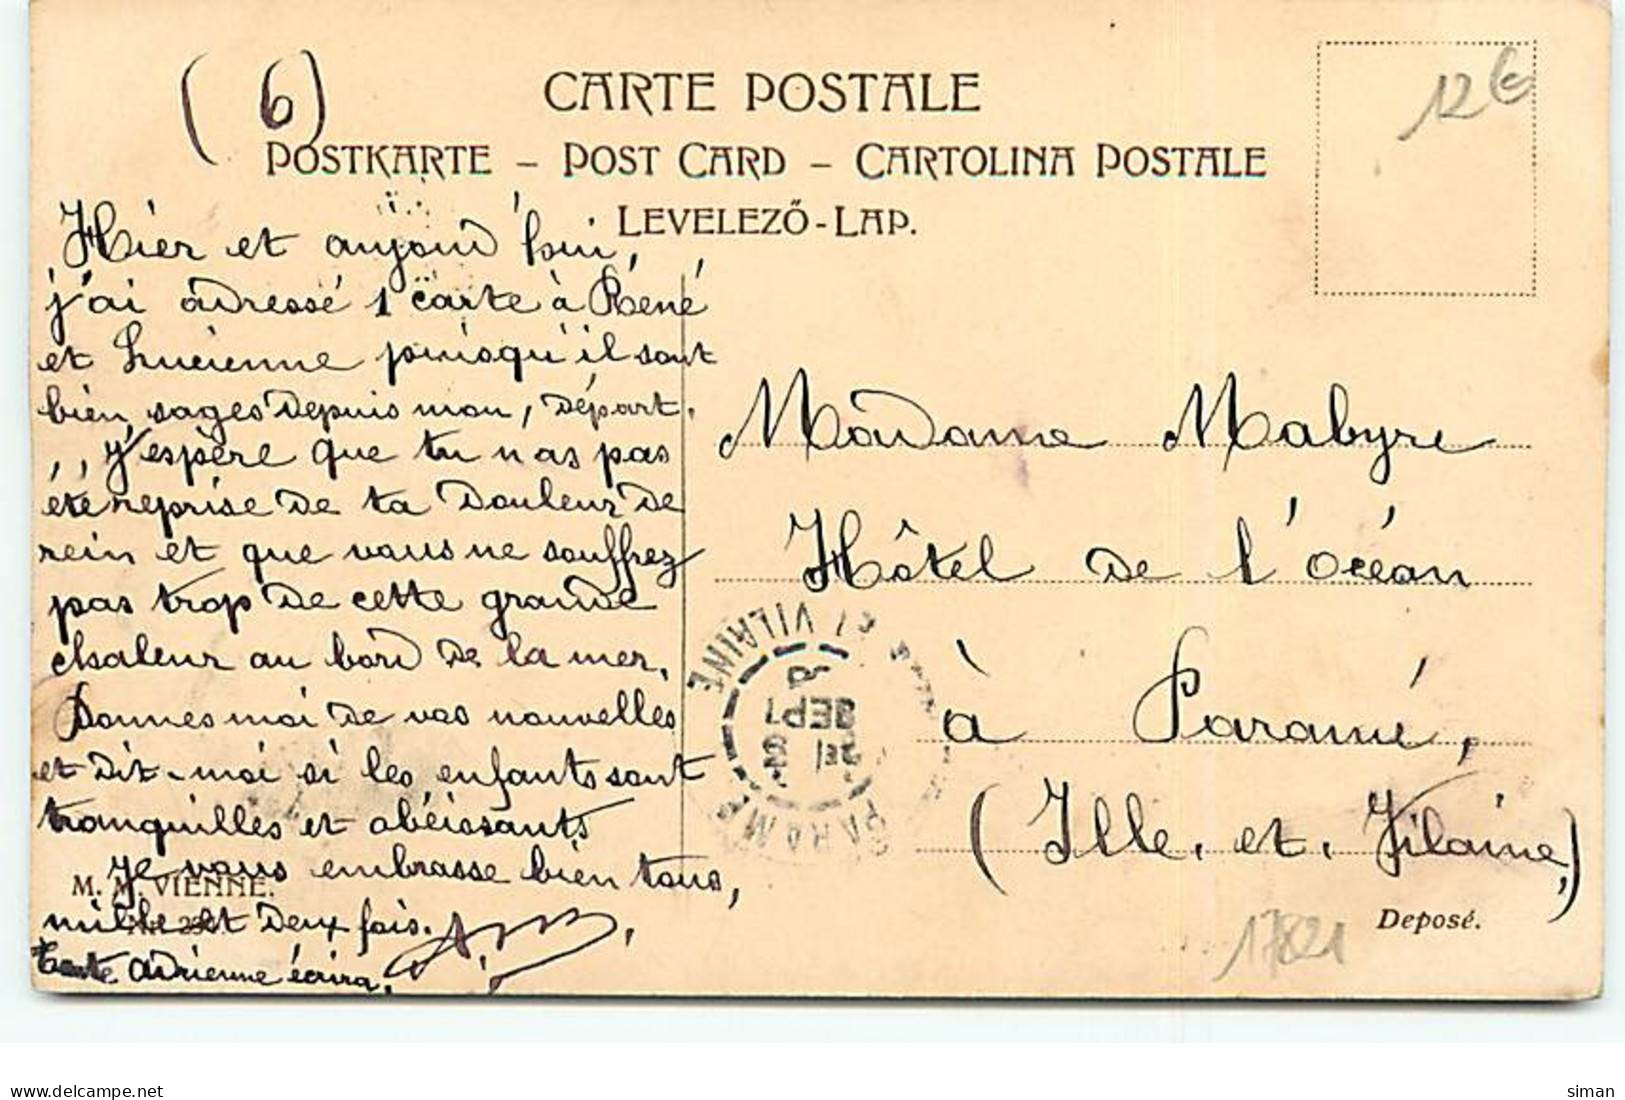 (6)
CARTE POSTALE
POSTKARTE – POST CARD – CARTOLINA POSTALE
LEVELEZŐ-LAP.
12€
Hier et aujourd'hui,
j'ai adressé 1 carte à René
et Lucienne puisqu'il sont
bien sages depuis mon départ.
J'espère que tu n'as pas
été reprise de ta douleur de
rein et que vous ne souffrez
pas trop de cette grande
chaleur au bord de la mer.
Donnes moi de vos nouvelles
et dit-moi si les enfants sont
tranquilles et obéissants
Je vous embrasse bien tous,
mille et deux fois.
tante Adrienne écrira.
M. M. VIENNE.
Nr.
Madame Mabyre
Hôtel de l'océan
à Paramé,
(Ille. et. Vilaine,)
PARAMÉ
SEPT
VILAINE
17821
Deposé.
delcampe.net
siman